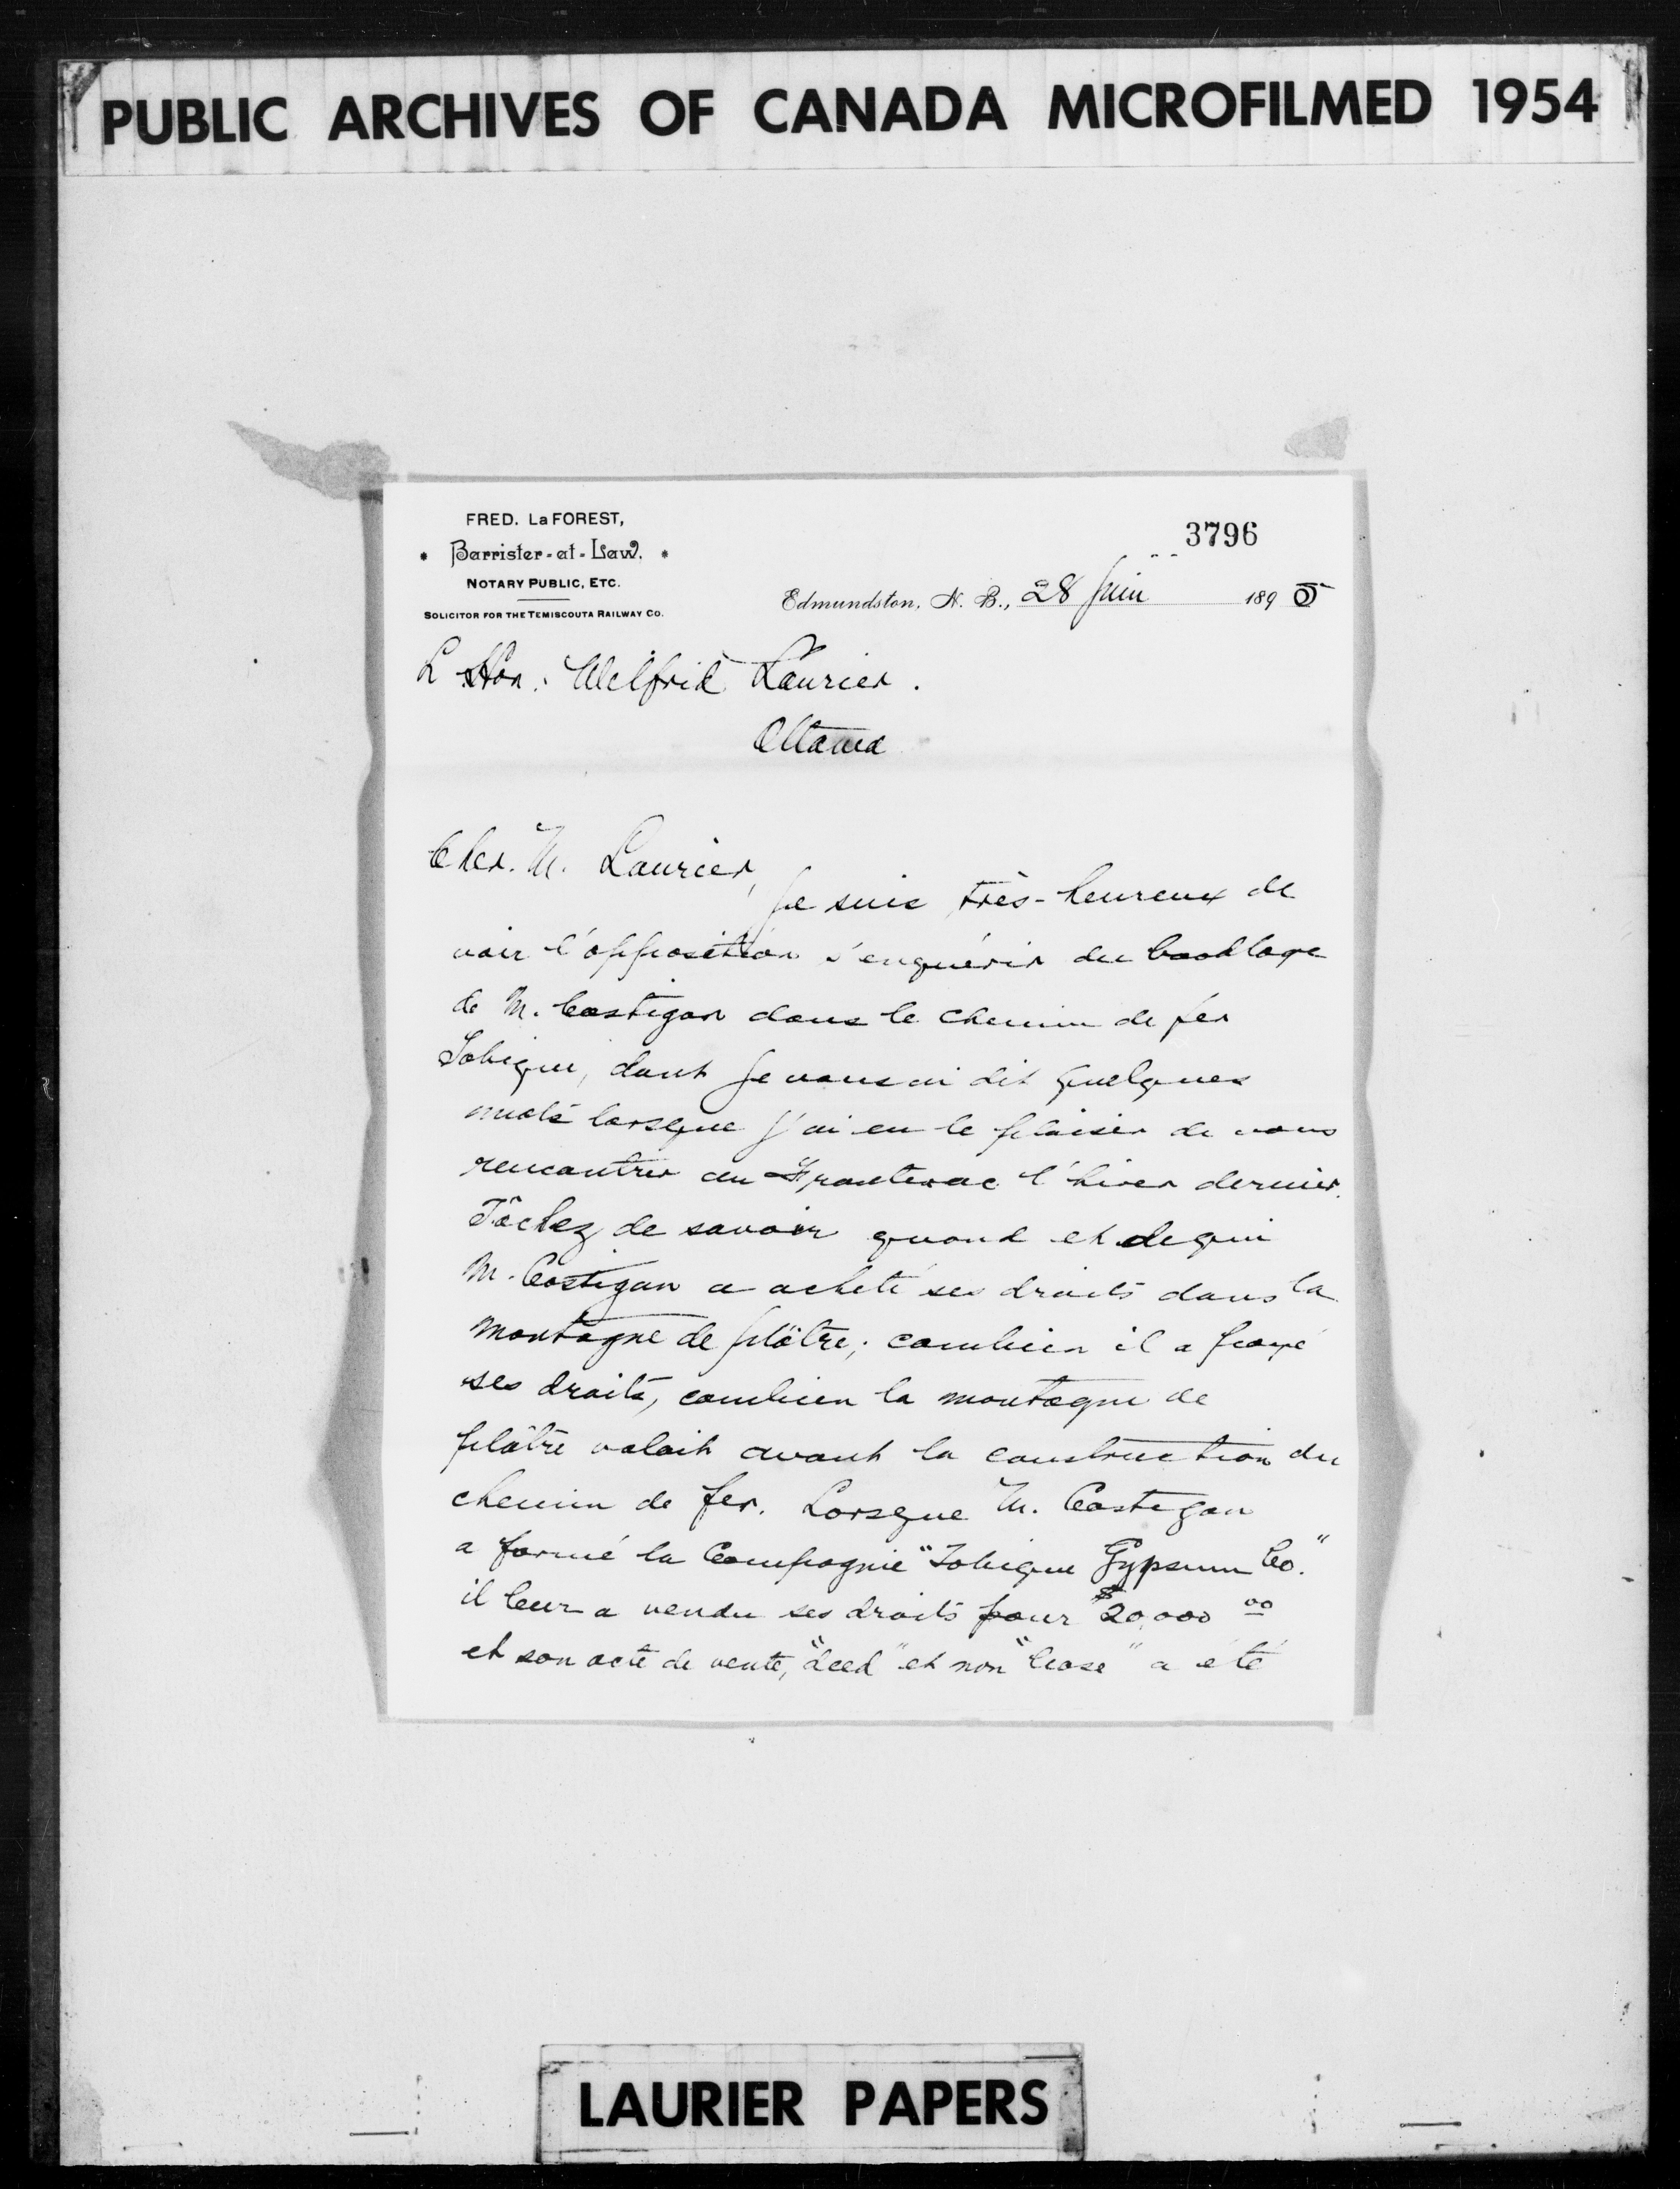 PUBLIC ARCHIVES OF CANADA MICROFILMED 1954
FRED. LaFOREST,
Barrister-at-Law.
NOTARY PUBLIC, ETC.
SOLICITOR FOR THE TEMISCOUTA RAILWAY CO.
3796
Edmundston, N. B., 28 Juin 1895
L Hon. Wilfrid Laurier.
Ottawa
Cher. M. Laurier,
Je suis très-heureux de
voir l'opposition s'enquérir du boodlage
de M. Costigan dans le chemin de fer
Tobique, dont je vous ai dit quelques
mots lorsque j'ai eu le plaisir de vous
rencontrer au Frontenac l'hiver dernier.
Tâchez de savoir quand et de qui
M. Costigan a acheté ses droits dans la
montagne de plâtre; combien il a payé
ses droits, combien la montagne de
plâtre valait avant la construction du
chemin de fer. Lorsque M. Costigan
a formé la Compagnie "Tobique Gypsum Co."
il leur a vendu ses droits pour $20,000 00
et son acte de vente, "deed" et non "lease" a été
LAURIER PAPERS